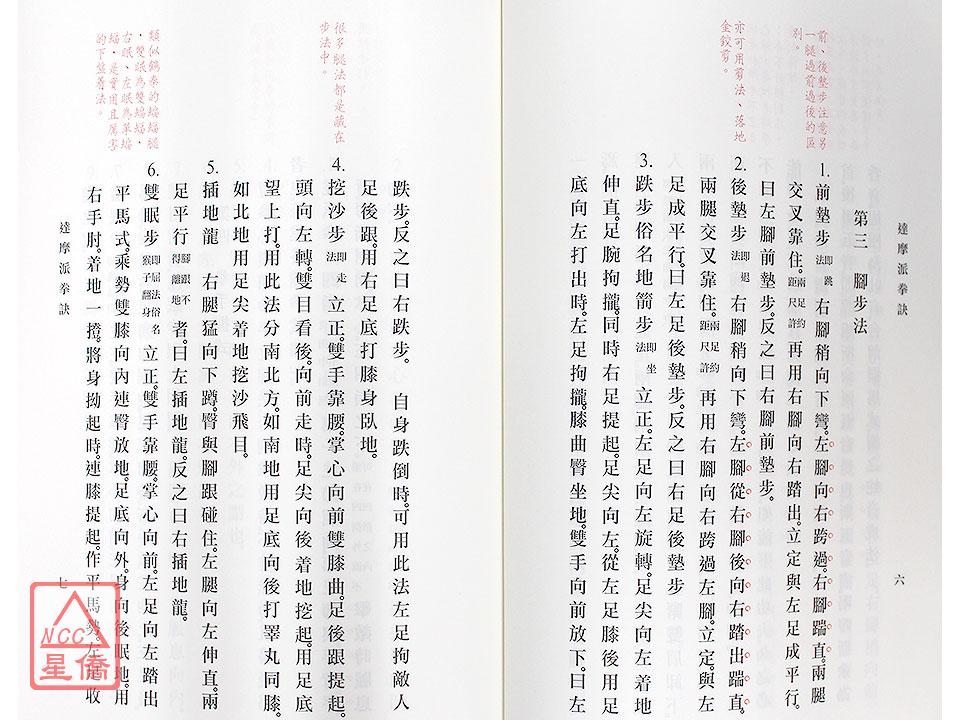 達摩派拳訣
六
第三　腳步法
前、後墊步注意另
一腿過前過後的區
別。
1. 前墊步即跳法 右腳稍向下彎。左腳向右跨過。右腳踹直。兩腿
交叉靠住。兩足約距尺許 再用右腳向右踏出。立定與左足成平行。
曰左腳前墊步。反之曰右腳前墊步。
亦可用剪法、落地
金鉸剪。
2. 後墊步即退法 右腳稍向下彎。左腳從右腳後向右踏出踹直。
兩腿交叉靠住。兩足約距尺許 再用右腳向右跨過左腳。立定。與左
足成平行。曰左足後墊步。反之曰右足後墊步
3. 跌步俗名地箭步即坐法 立正。左足向左旋轉。足尖向左着地
伸直。足腕拘攏。同時右足提起。足尖向左。從左足膝後用足
底向左打出時。左足拘攏。膝曲臀坐地。雙手向前放下。曰左
跌步。反之曰右跌步。　自身跌倒時。可用此法左足拘敵人
足後跟。用右足底打膝身臥地。
很多腿法都是藏在
步法中。
4. 挖沙步即走法 立正。雙手靠腰。掌心向前雙膝曲。足後跟提起。
頭向左轉。雙目看後。向前走時。足尖向後着地挖起。用足底
望上打。用此法分南北方。如南地用足底向後打睪丸同膝。
如北地用足尖着地挖沙飛目。
5. 插地龍　右腿猛向下蹲。臀與腳跟碰住。左腿向左伸直。兩
足平行腳跟不得離地 者。曰左插地龍。反之曰右插地龍。
類似鶴拳的蝙蝠腿
，雙眠為雙蝙蝠，
右眠、左眠為單蝙
蝠，是實用且厲害
的下盤着法。
6. 雙眠步即屈法俗名猴子翻身 立正。雙手靠腰。掌心向前。左足向左踏出
平馬式。乘勢雙膝向內連臀放地。足底向外。身向後眠地。用
右手肘。着地一撐。將身拗起時。連膝提起。作平馬勢。左足收
達摩派拳訣
七
NCC
星僑